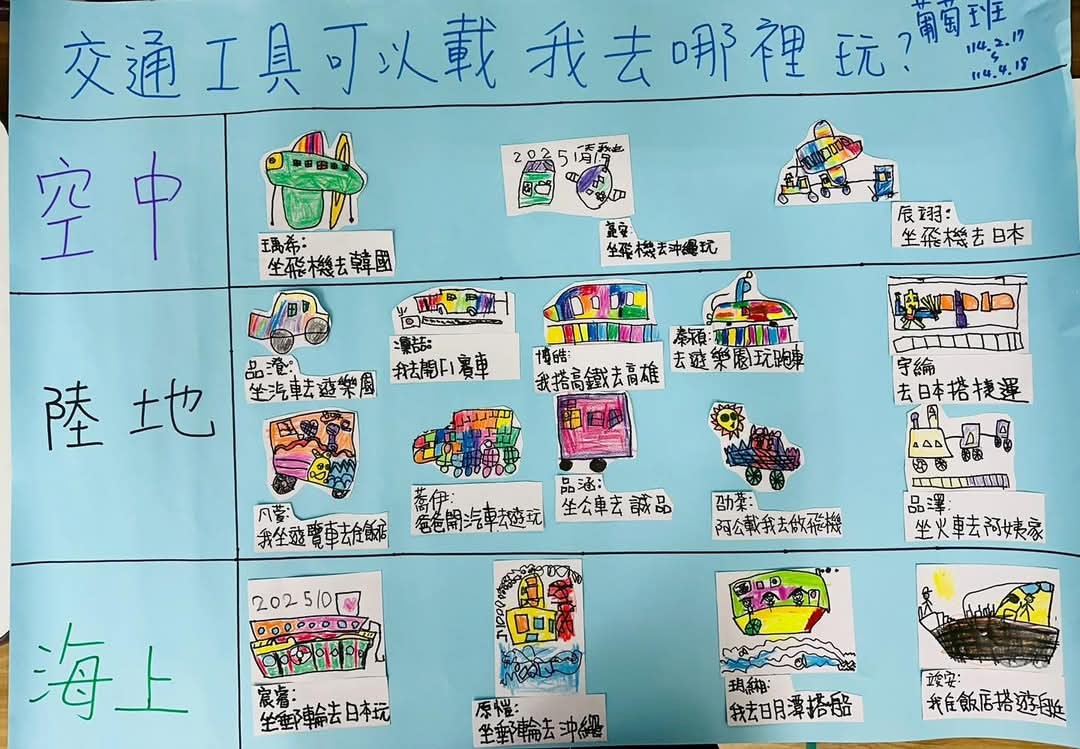 交通工具可以載我去哪裡玩?
葡萄班
114.2.17
114.4.18
空中
瑪希:
坐飛機去韓國
坐飛機去沖繩玩
辰翊:
坐飛機去日本
陸地
品澄:
坐汽車去遊樂園
我去開F1賽車
博皓:
我搭高鐵去高雄
去遊樂園玩跑車
宇綸
去日本搭捷運
凡萱:
我坐遊覽車去住飯店
喬伊:
爸爸開汽車去遊玩
品涵:
坐公車去誠品
劭棻:
阿公載我去啟飛機
品澤:
坐火車去阿姨家
海上
202510
宸睿:
坐郵輪去日本玩
原愷:
坐郵輪去沖繩
我去日月潭搭船
我住飯店搭遊艇